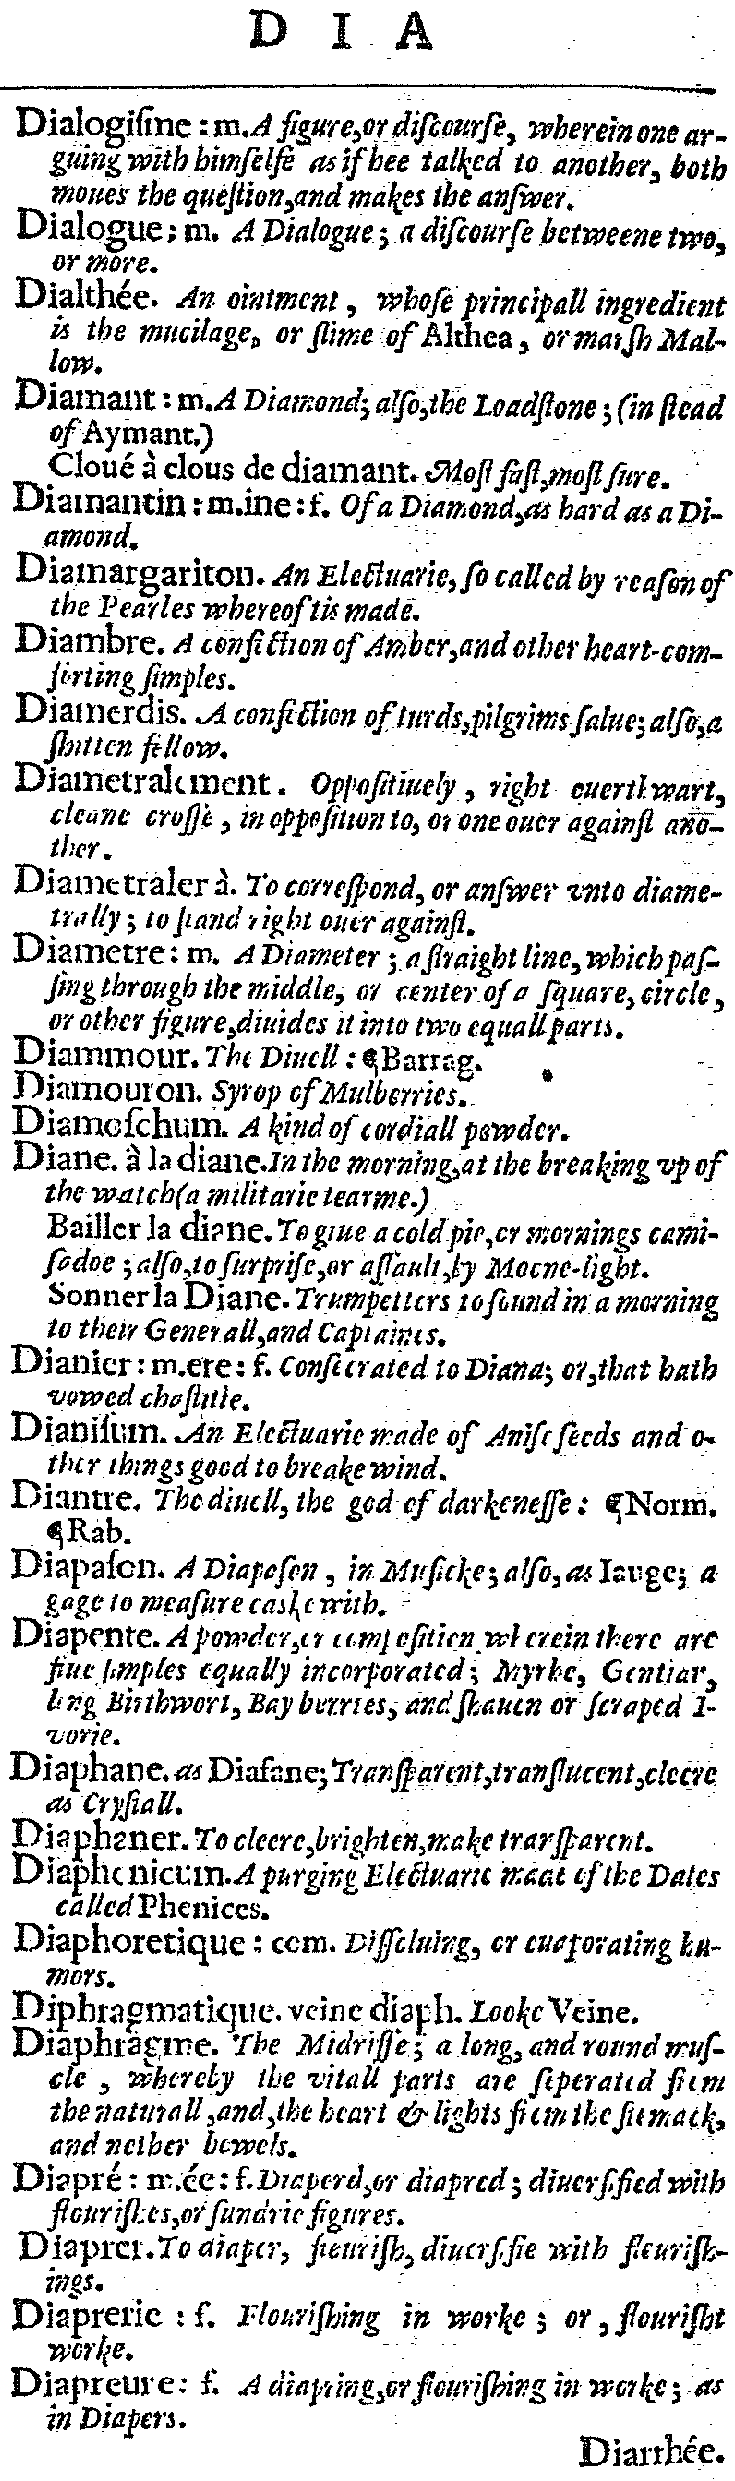 D I A
Dialogiſme : m. A figure, or diſcourſe, wherein one ar-
guing with himſelfe as if hee talked to another, both
moues the queſtion, and makes the anſwer.
Dialogue; m. A Dialogue; a diſcourſe betweene two,
or more.
Dialthée. An ointment, whoſe principall ingredient
is the mucilage, or ſlime of Althea, or marſh Mal-
low.
Diamant : m. A Diamond; alſo, the Loadſtone; (in ſtead
of Aymant.)
Cloué à clous de diamant. Moſt faſt, moſt ſure.
Diamantin : m. ine : f. Of a Diamond, as hard as a Di-
amond.
Diamargariton. An Electuarie, ſo called by reaſon of
the Pearles whereof tis made.
Diambre. A confection of Amber, and other heart-com-
forting ſimples.
Diamerdis. A confection of turds, pilgrims ſalue; alſo, a
ſhitten fellow.
Diametralement. Oppoſitiuely, right ouerthwart,
cleane croſſe, in oppoſition to, or one ouer againſt ano-
ther.
Diametraler à. To correſpond, or anſwer vnto diame-
trally; to ſtand right ouer againſt.
Diametre : m. A Diameter; a ſtraight line, which paſ-
ſing through the middle, or center of a ſquare, circle,
or other figure, diuides it into two equall parts.
Diammour. The Diuell : ¶Barrag.
Diamouron. Syrop of Mulberries.
Diamoſchum. A kind of cordiall powder.
Diane. à la diane. In the morning, at the breaking vp of
the watch (a militarie tearme.)
Bailler la diane. To giue a cold pie, or mornings cami-
ſadoe; alſo, to ſurpriſe, or aſſault, by Moone-light.
Sonner la Diane. Trumpetters to ſound in a morning
to their Generall, and Captaines.
Dianier : m. ere : f. Conſecrated to Diana; or, that hath
vowed chaſtitie.
Dianiſum. An Electuarie made of Aniſe ſeeds and o-
ther things good to breake wind.
Diantre. The diuell, the god of darkeneſſe : ¶Norm.
¶Rab.
Diapaſon. A Diapaſon, in Muſicke; alſo, as Iauge; a
gage to meaſure caske with.
Diapente. A powder, or compoſition wherein there are
fiue ſimples equally incorporated; Myrhe, Gentian,
long Birthwort, Bay berries, and ſhauen or ſcraped I-
vorie.
Diaphane. as Diafane; Tranſparent, tranſlucent, cleere
as Cryſtall.
Diaphaner. To cleere, brighten, make tranſparent.
Diaphenicum. A purging Electuarie made of the Dates
called Phenices.
Diaphoretique : com. Diſſoluing, or euaporating hu-
mors.
Diphragmatique. veine diaph. Looke Veine.
Diaphragme. The Midriffe; a long, and round muſ-
cle, whereby the vitall parts are ſeperated from
the naturall, and, the heart & lights from the ſtomack,
and nether bowels.
Diapré : m. ée : f. Diaperd, or diapred; diuerſified with
flouriſhes, or ſundrie figures.
Diaprer. To diaper, flouriſh, diuerſifie with flouriſh-
ings.
Diaprerie : f. Flouriſhing in worke; or, flouriſht
worke.
Diapreure : f. A diapring, or flouriſhing in worke; as
in Diapers.
Diarrhée.